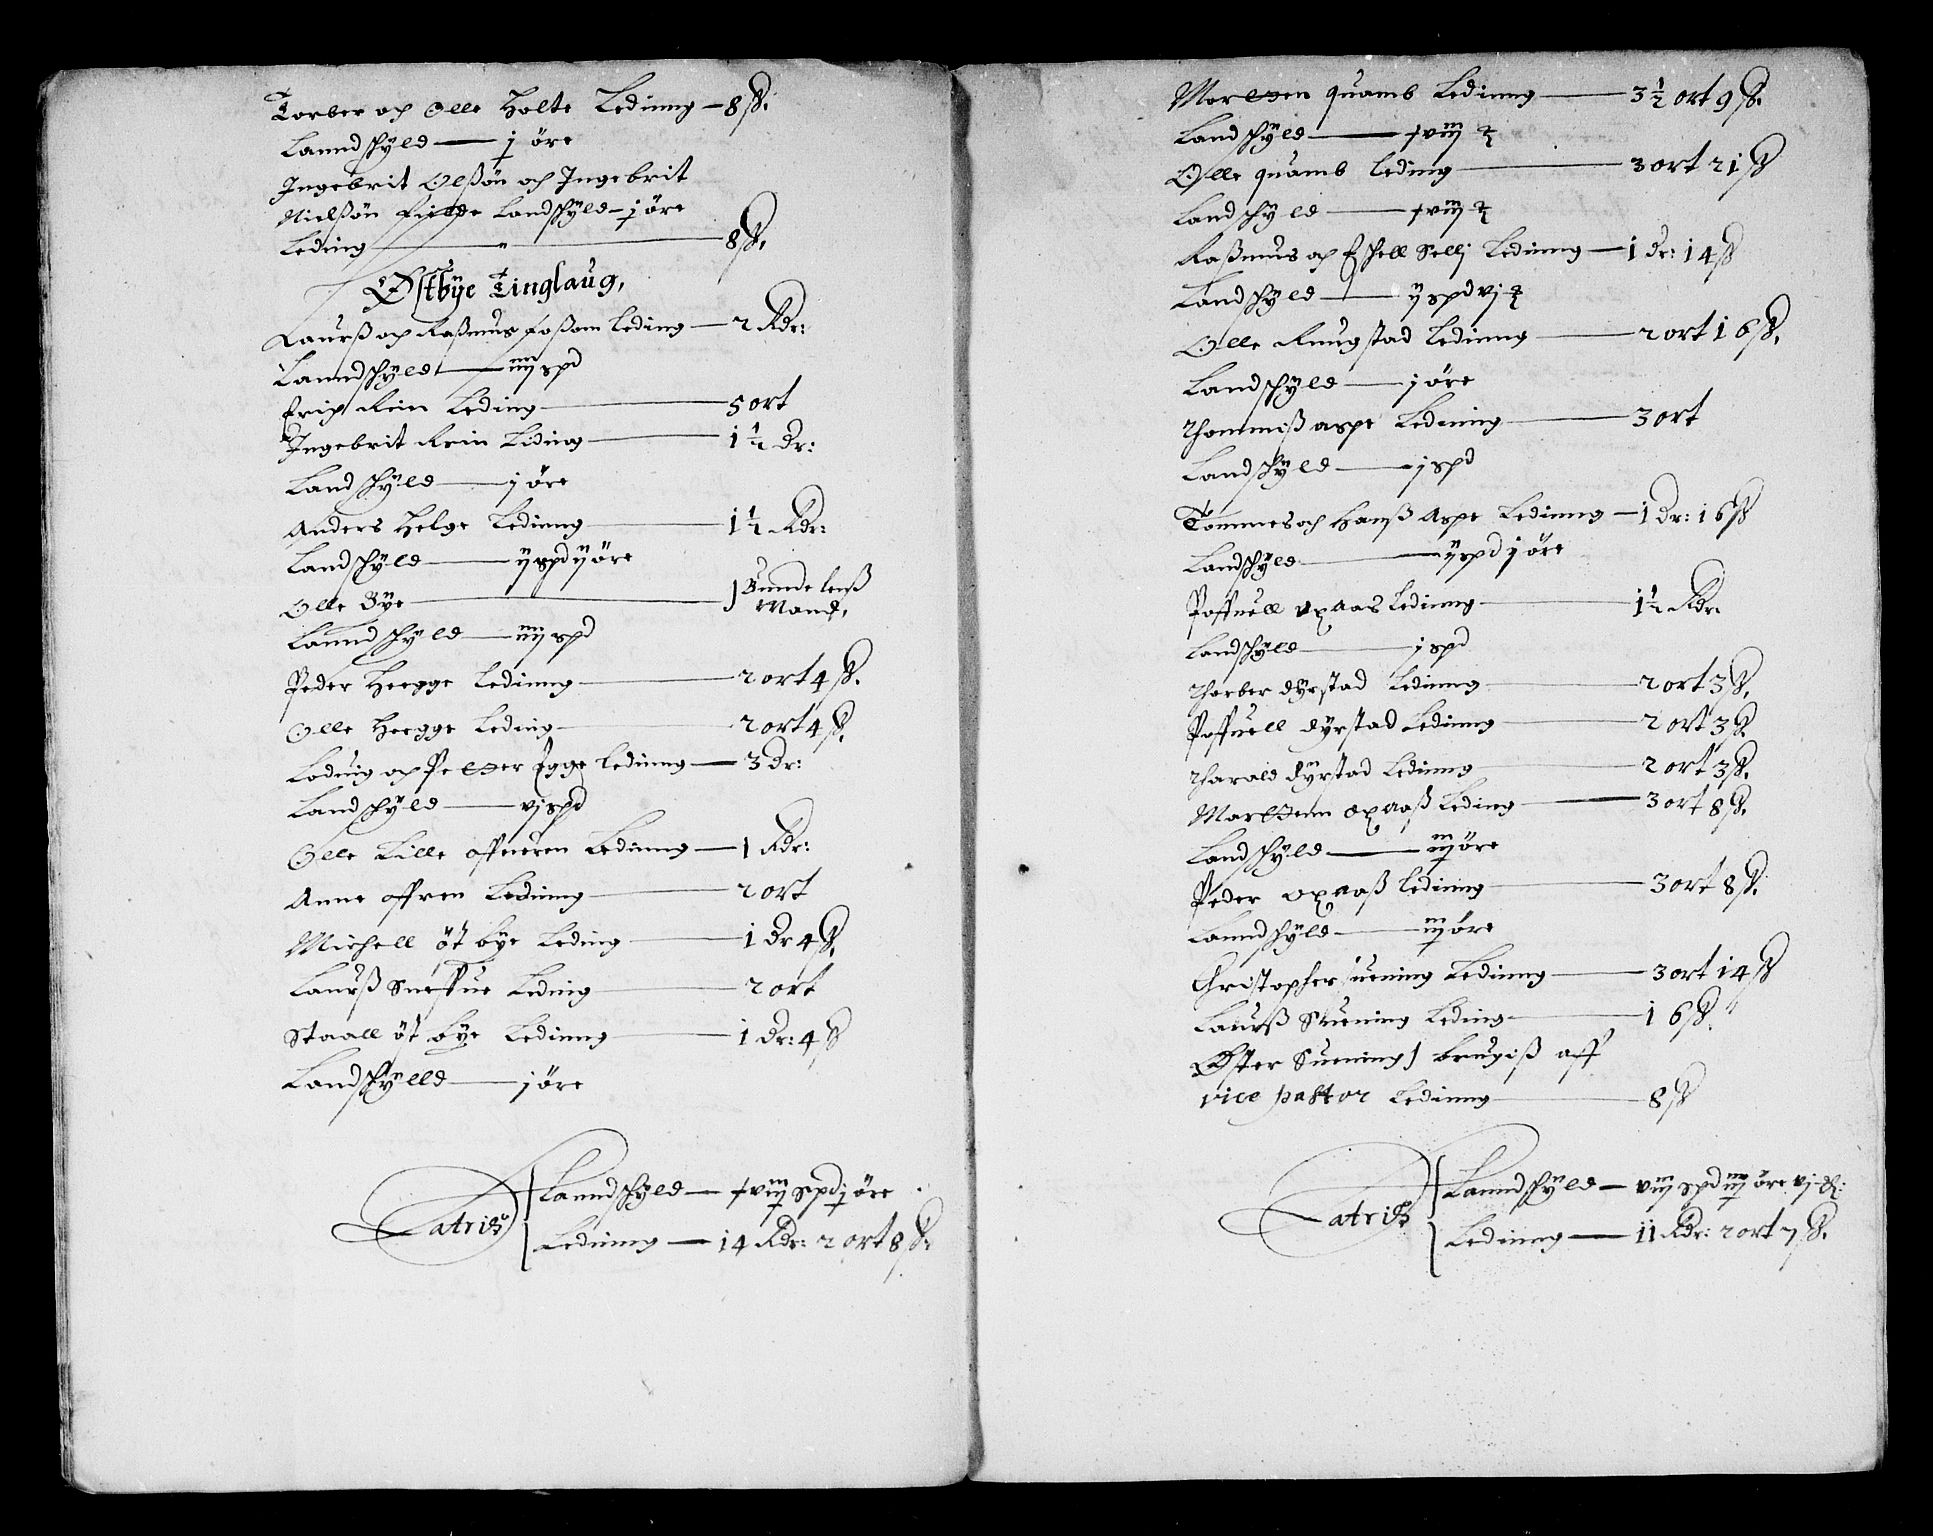 Torber och Olle Holte Ledinng – 8 ß.
Lanndschyld — j öre
Ingebrit Olßön och Ingebrit
Nielßön Landschyld – j öre
Leding — 8 ß.
Østbye Tinglaug,
Laurß och Raßmus Foßom leding — 2 Rdr:
Lanndschyld — iiij spd
Erich Rein Leding — 5 ort
Ingebrit Rein Liding — 1½ Dr:
Landschyld — j öre
Anders Helge Ledinng — 1½ Rdr:
Landschyld — ij spd ij öre
Olle Bye — } Bunde lenß
Mand,
Lanndschyld — iiij spd
Peder Heegge Ledinng — 2 ort 4 ß.
Olle Heegge Leding — 2 ort 4 ß.
Loduig och Petter Egge ledinng — 3 Dr:
Landschyld — vj spd
Olle Lille offreren Ledinng — 1 Rdr:
Anne offren Ledinng — 2 ort
Michell öt bye Leding — 1 Dr 4 ß.
Laurß Sneffue Leding — 2 ort
Staall öt bye Ledinng — 1 Dr: 4 ß
Landschylld — j öre
Latriß { Lanndschyld — xviij spd j öre
Ledinng — 14 Rdr: 2 ort 8 ß:
Martten quamb Ledinng — 3½ ort 9 ß.
Landschyld — xviij
Olle quamb leding — 3 ort 21 ß
Landschyld — xviij
Raßmus och Eschell Sellj Ledinng — 1 dr: 14 ß
Landschyld — ij spd vj
Olle Ringstad Ledinng — 2 ort 16 ß.
Landschyld — j öre
Thommiß aspe Ledinng — 3 ort
Landschyld — j spd
Tommes och Hanß Aspe Ledinng — 1 Dr: 16 ß
Landschyld — ij spd j öre
Poffuell oxaas Ledinng — 1½ Rdr.
Landschyld — j spd
Thorber dyrstad Ledinng — 2 ort 3 ß.
Poffuell dyrstad Ledinng — 2 ort 3 ß.
Tharald dyrstad Ledinng — 2 ort 3 ß.
Marttenn oxaaß Leding — 3 ort 8 ß.
Landschyld — iij öre
Peder oxaaß ledinng — 3 ort 8 ß.
Lanndschyld — iij öre
Christopher suening Ledinng — 3 ort 14 ß
Laurß Suening Leding — 16 ß.
Øster Suening } brugiß aff
vice pastor Ledinng — 8 ß
Latriß { Lanndschyld — viij spd iiij öre vj
Ledinng — 11 Rdr: 2 ort 7 ß.